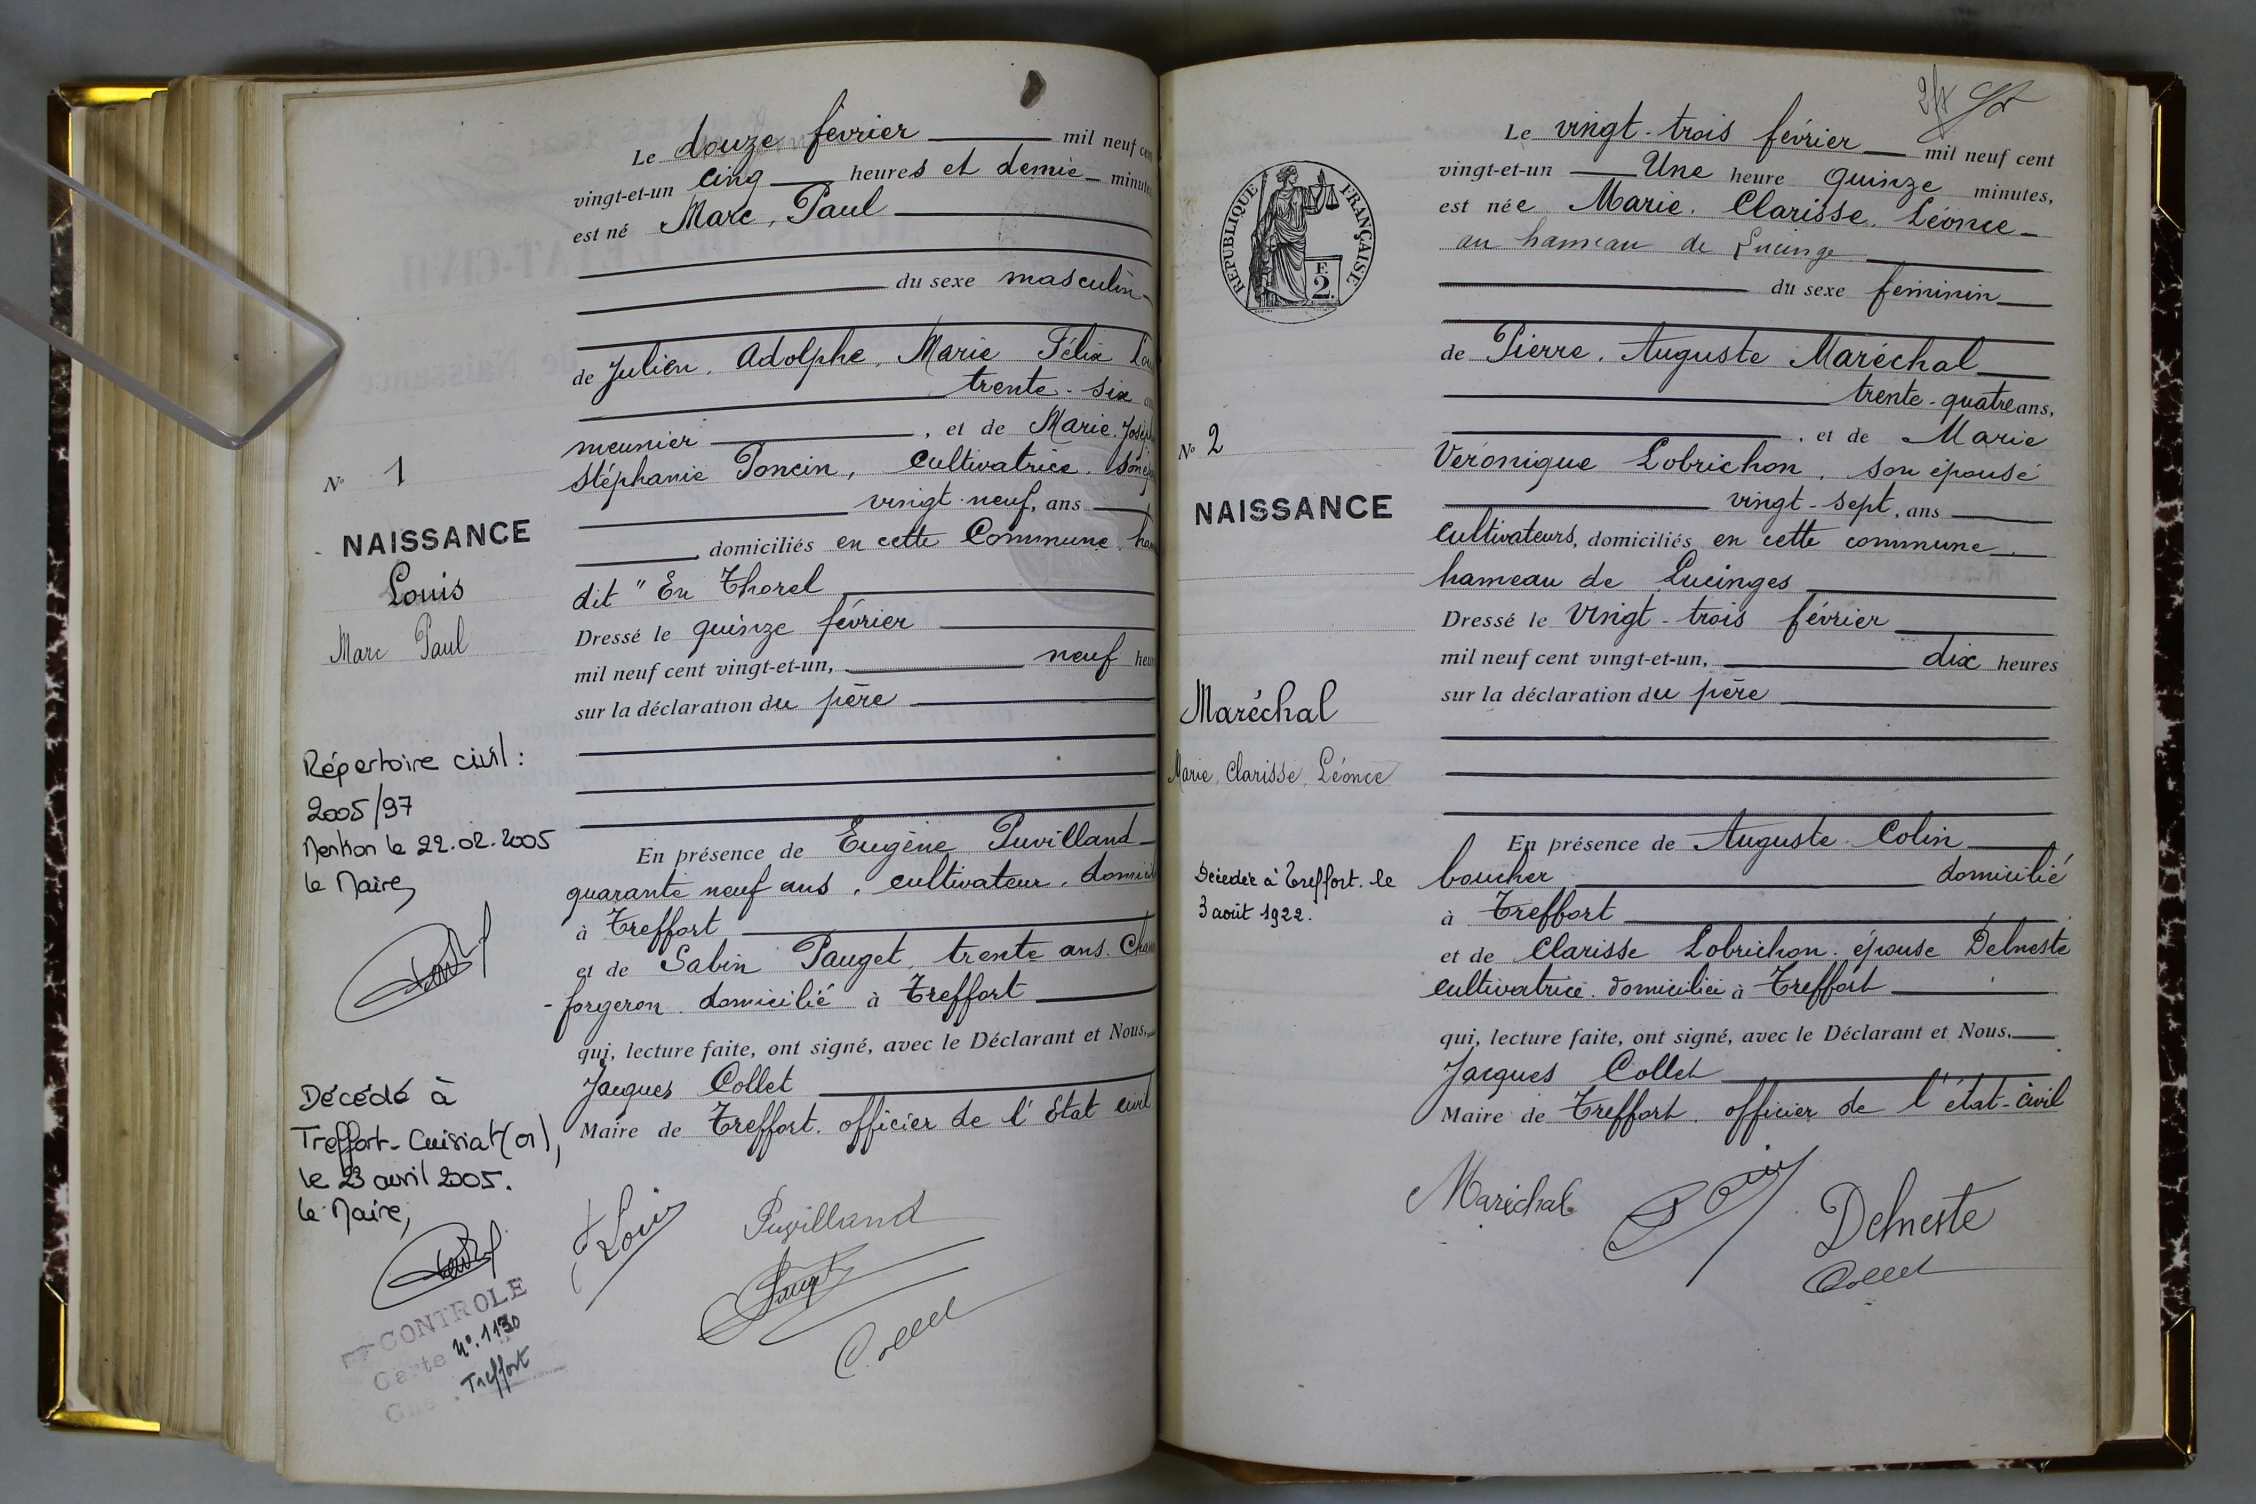 Le douze février mil neuf cent
vingt-et-un cinq heures et demie minutes
est né Marc, Paul
du sexe masculin
de Julien, Adolphe, Marie Félix
trente-six
meunier, et de Marie. Josép
Stéphanie Poncin, cultivatrice. son
vingt-neuf, ans
domiciliés en cette Commune. ham
dit "En Thorel
Dressé le quinze février
mil neuf cent vingt-et-un, neuf heu
sur la déclaration du père
En présence de Eugène Puvilland
quarante neuf ans, cultivateur, domicil
à Treffort
et de Sabin Pauget, trente ans. Cha
-forgeron domicilié à Treffort
qui, lecture faite, ont signé, avec le Déclarant et Nous,
Jacques Collet
Maire de Treffort. officier de l'état civil
Louis
Puvilland
Pauget
Collet
No 1
NAISSANCE
Louis
Marc Paul
Répertoire civil :
2005/97
Mention le 22.02.2005
le Maire,
Décédé à
Treffort-Cuisiat (01),
le 23 avril 2005.
le Maire,
CONTROLE
Carte No. 1130
Treffort
2/x
Le vingt-trois février mil neuf cent
vingt-et-un Une heure quinze minutes,
est née Marie, Clarisse, Léonce
au hameau de Lucinge
du sexe féminin
de Pierre, Auguste Maréchal
trente-quatre ans,
, et de Marie
Véronique Lobrichon, son épouse
vingt-sept, ans
cultivateurs, domiciliés en cette commune.
hameau de Lucinges
Dressé le vingt-trois février
mil neuf cent vingt-et-un, dix heures
sur la déclaration du père
En présence de Auguste Colin
boucher domicilié
à Treffort
et de Clarisse Lobrichon épouse Delneste
cultivatrice domiciliée à Treffort
qui, lecture faite, ont signé, avec le Déclarant et Nous,
Jacques Collet
Maire de Treffort. officier de l'état-civil
Maréchal
Delneste
Collet
RÉPUBLIQUE FRANÇAISE
F.
2.
No 2
NAISSANCE
Maréchal
Marie, Clarisse, Léonce
Décédée à Treffort. le
3 août 1922.